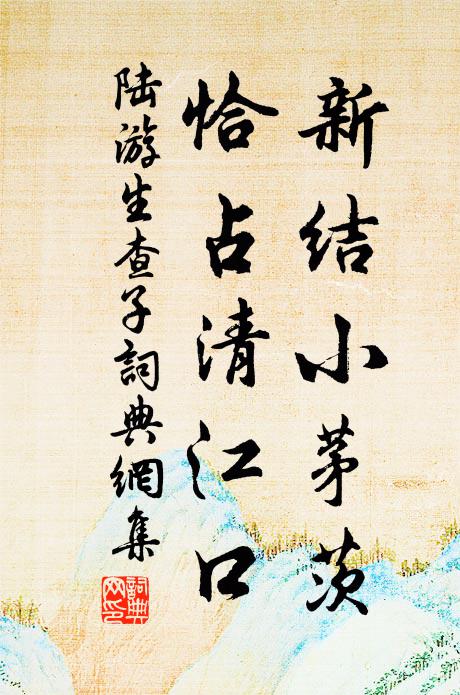 新结小茅茨
恰占清江口
陆游生查子詞典網集
詞典